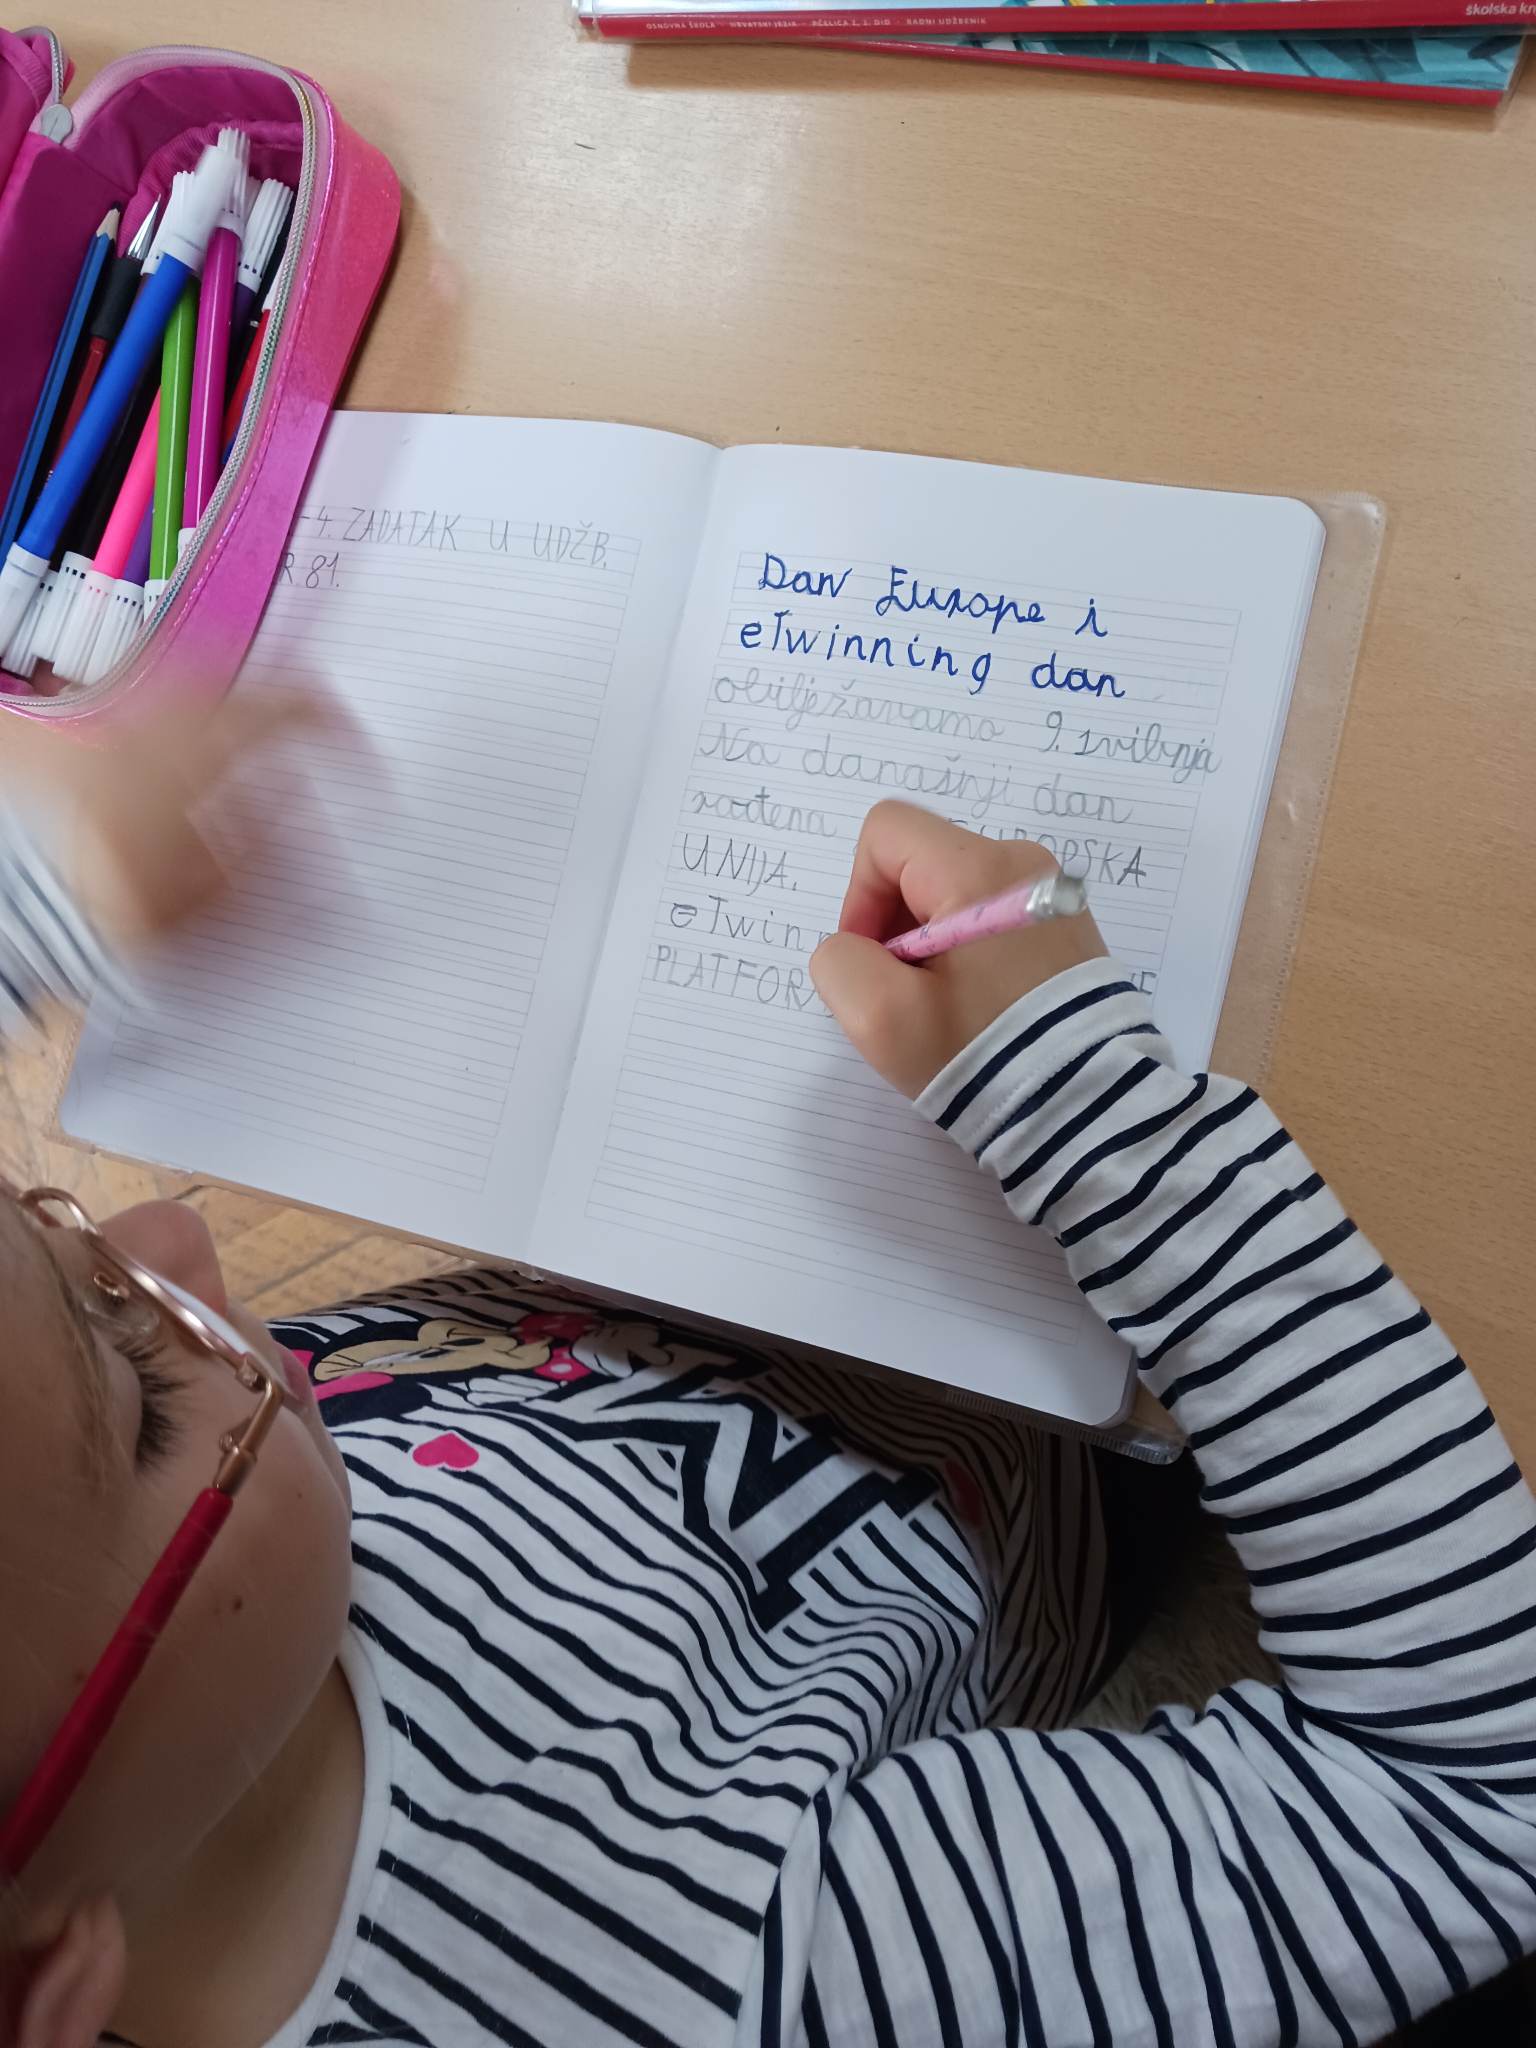 OSNOVNA ŠKOLA · HRVATSKI JEZIK · PČELICA 1, 2. DIO · RADNI UDŽBENIK
školska kn
-4. ZADATAK U UDŽB.
R. 81.
Dan Europe i
eTwinning dan
obilježavamo 9. svibnja
Na današnji dan
rođena EUROPSKA
UNIJA.
eTwinn
PLATFOR